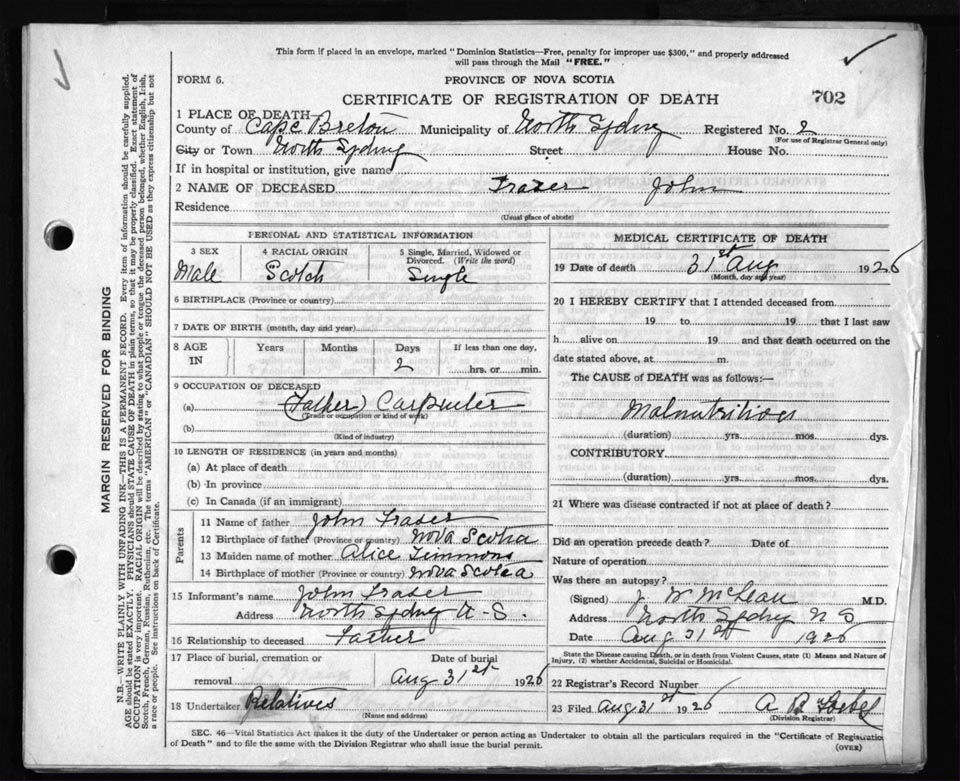 This form if placed in an envelope, marked "Dominion Statistics—Free, penalty for improper use $300," and properly addressed
will pass through the Mail "FREE."
FORM 6.
PROVINCE OF NOVA SCOTIA
CERTIFICATE OF REGISTRATION OF DEATH
702
1 PLACE OF DEATH
County of Cape Breton Municipality of North Sydney Registered No. 2
(For use of Registrar General only)
City or Town North Sydney Street House No.
If in hospital or institution, give name
2 NAME OF DECEASED Fraser John
Residence
(Usual place of abode)
PERSONAL AND STATISTICAL INFORMATION
3 SEX 4 RACIAL ORIGIN 5 Single, Married, Widowed or
Divorced. (Write the word)
Male Scotch Single
6 BIRTHPLACE (Province or country)
7 DATE OF BIRTH (month, day and year)
8 AGE Years Months Days If less than one day,
IN 2 hrs. or min.
9 OCCUPATION OF DECEASED
(a) (Father) Carpenter
(Trade or occupation or kind of work)
(b)
(Kind of industry)
10 LENGTH OF RESIDENCE (in years and months)
(a) At place of death
(b) In province
(c) In Canada (if an immigrant)
Parents
11 Name of father John Fraser
12 Birthplace of father (Province or country) Nova Scotia
13 Maiden name of mother Alice Timmons
14 Birthplace of mother (Province or country) Nova Scotia
15 Informant's name John Fraser
Address North Sydney N.S.
16 Relationship to deceased Father
17 Place of burial, cremation or Date of burial
removal Aug 31st 1926
18 Undertaker Relatives
(Name and address)
MEDICAL CERTIFICATE OF DEATH
19 Date of death 31st Aug 1926
(Month, day and year)
20 I HEREBY CERTIFY that I attended deceased from
19 to 19 that I last saw
h alive on 19 and that death occurred on the
date stated above, at m.
The CAUSE of DEATH was as follows:—
Malnutrition
(duration) yrs. mos. dys.
CONTRIBUTORY
(duration) yrs. mos. dys.
21 Where was disease contracted if not at place of death?
Did an operation precede death? Date of
Nature of operation
Was there an autopsy?
(Signed) J W McLean M.D.
Address North Sydney N S
Date Aug 31st 1926
State the Disease causing Death, or in death from Violent Causes, state (1) Means and Nature of
Injury, (2) whether Accidental, Suicidal or Homicidal.
22 Registrar's Record Number
23 Filed Aug 31st 1926 A B
(Division Registrar)
SEC. 46—Vital Statistics Act makes it the duty of the Undertaker or person acting as Undertaker to obtain all the particulars required in the "Certificate of Registration
of Death" and to file the same with the Division Registrar who shall issue the burial permit.
(OVER)
MARGIN RESERVED FOR BINDING
N.B.—WRITE PLAINLY WITH UNFADING INK—THIS IS A PERMANENT RECORD. Every item of information should be carefully supplied.
AGE should be stated EXACTLY. PHYSICIANS should STATE CAUSE OF DEATH in plain terms, so that it may be properly classified. Exact statement of
OCCUPATION is very important. RACIAL ORIGIN will be described by stating to what people or tongue the deceased person belonged, whether English, Irish,
Scotch, French, German, Russian, Ruthenian, etc. The terms "AMERICAN" or "CANADIAN" SHOULD NOT BE USED as they express citizenship but not
a race or people. See instructions on back of Certificate.